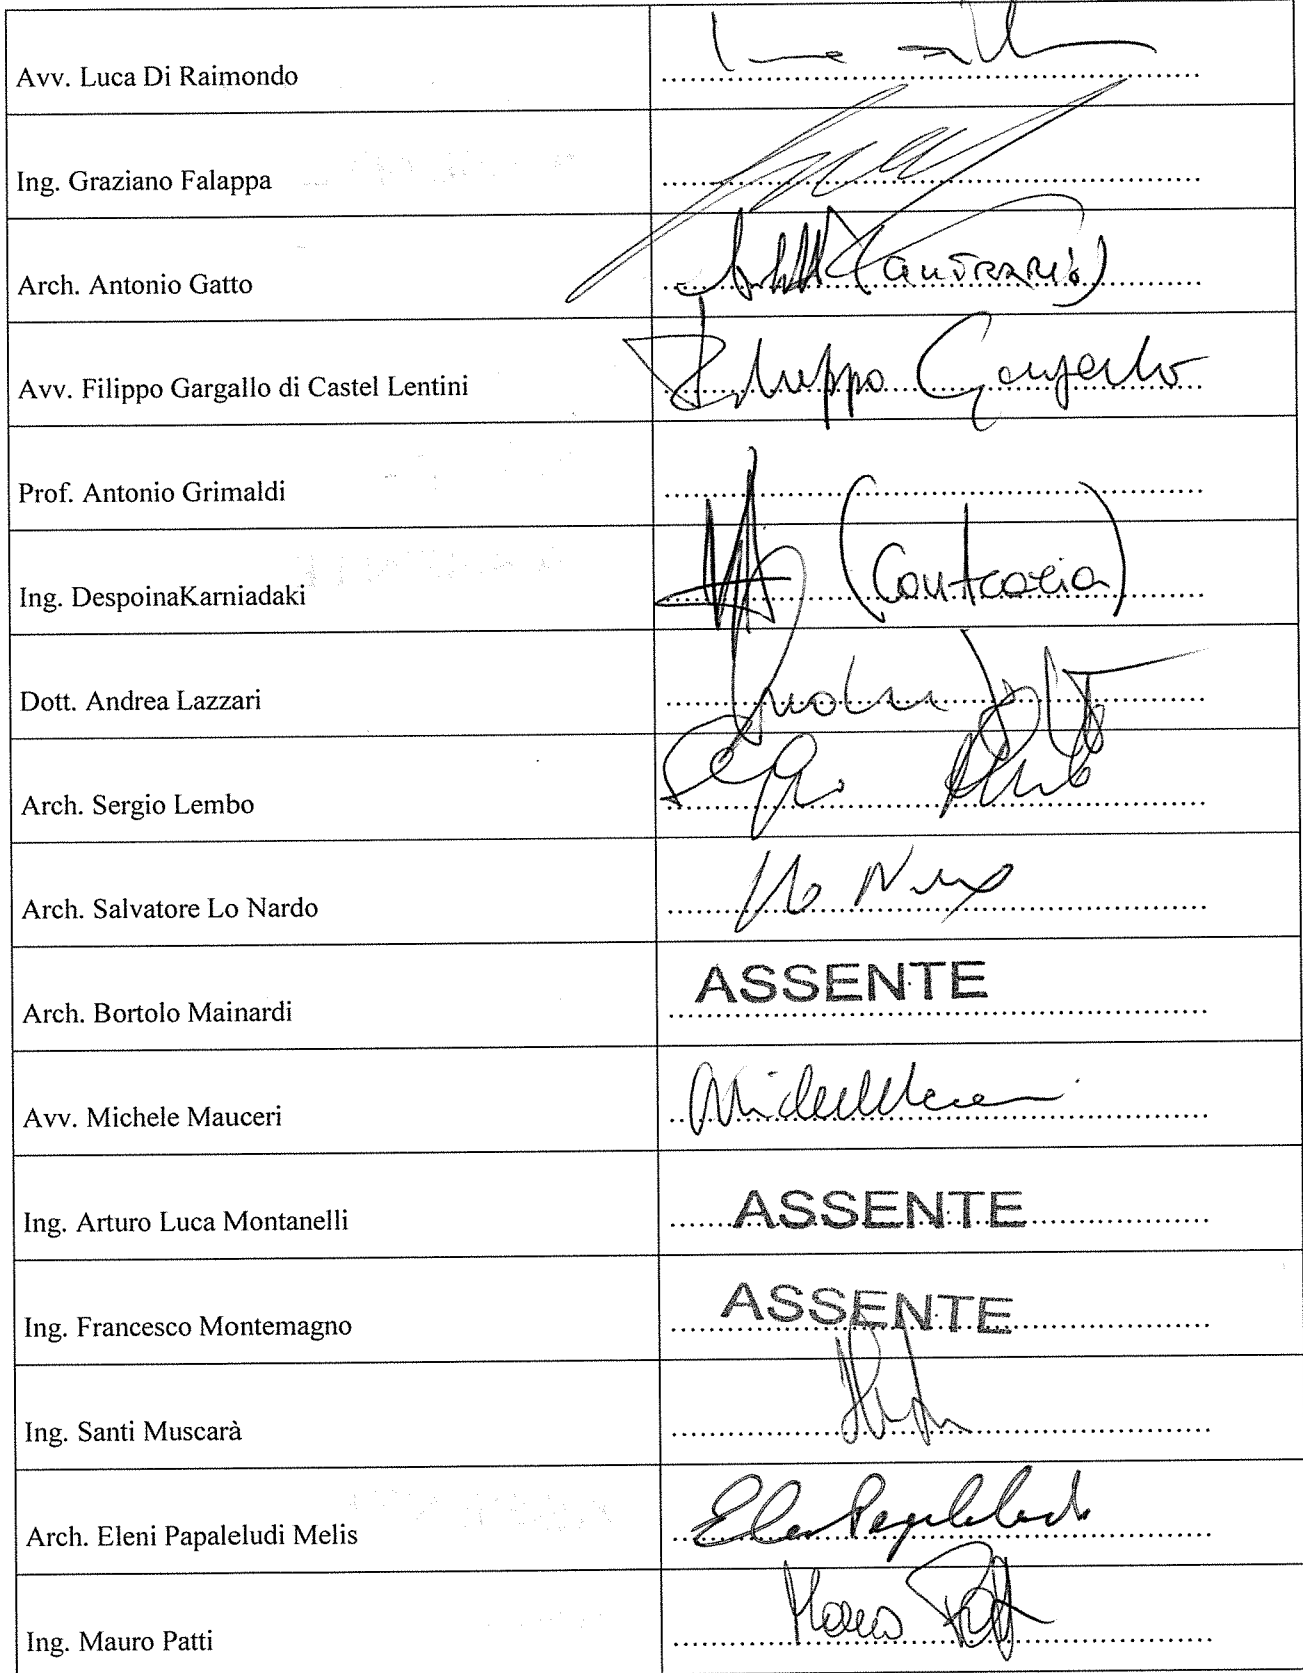 Avv. Luca Di Raimondo
Ing. Graziano Falappa
Arch. Antonio Gatto (CONTRARIO)
Avv. Filippo Gargallo di Castel Lentini Filippo Gargallo
Prof. Antonio Grimaldi
Ing. DespoinaKarniadaki (Contraria)
Dott. Andrea Lazzari
Arch. Sergio Lembo
Arch. Salvatore Lo Nardo
Arch. Bortolo Mainardi ASSENTE
Avv. Michele Mauceri
Ing. Arturo Luca Montanelli ASSENTE
Ing. Francesco Montemagno ASSENTE
Ing. Santi Muscarà
Arch. Eleni Papaleludi Melis
Ing. Mauro Patti Mauro Patti